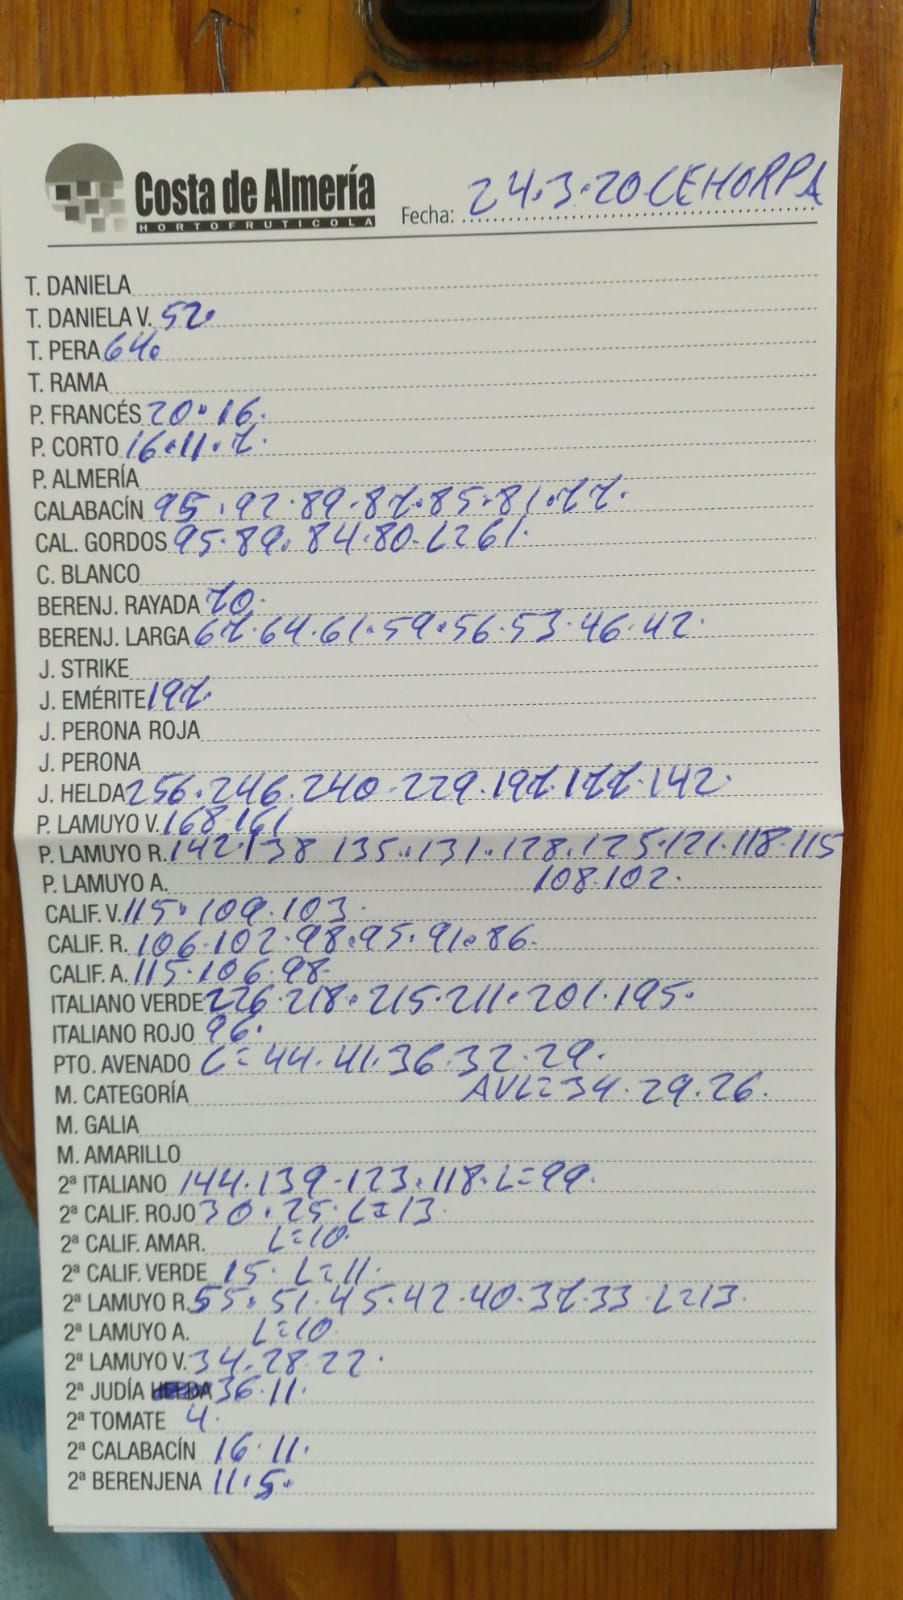 Costa de Almería
HORTOFRUTICOLA
Fecha: 24.3.20 CEHORPA
T. DANIELA
T. DANIELA V. 52.
T. PERA 64.
T. RAMA
P. FRANCÉS 20.16.
P. CORTO 16.11.7.
P. ALMERÍA
CALABACÍN 95.92.89.87.85.81.77.
CAL. GORDOS 95.89.84.80.L=61.
C. BLANCO
BERENJ. RAYADA 70.
BERENJ. LARGA 67.64.61.59.56.53.46.42.
J. STRIKE
J. EMÉRITE 197.
J. PERONA ROJA
J. PERONA
J. HELDA 256.246.240.229.197.177.142.
P. LAMUYO V. 168.161
P. LAMUYO R. 142.138 135.131.128.125.121.118.115
P. LAMUYO A. 108.102.
CALIF. V. 115.109.103.
CALIF. R. 106.102.98.95.91.86.
CALIF. A. 115.106.98.
ITALIANO VERDE 226.218.215.211.201.195.
ITALIANO ROJO 96.
PTO. AVENADO L=44.41.36.32.29.
M. CATEGORÍA AVL=34.29.26.
M. GALIA
M. AMARILLO
2ª ITALIANO 144.139.123.118.L=99.
2ª CALIF. ROJO 30.25.L=13.
2ª CALIF. AMAR. L=10.
2ª CALIF. VERDE 15.L=11.
2ª LAMUYO R. 55.51.45.42.40.37.33.L=13.
2ª LAMUYO A. L=10.
2ª LAMUYO V. 34.28.22.
2ª JUDÍA HELDA 36.11.
2ª TOMATE 4.
2ª CALABACÍN 16.11.
2ª BERENJENA 11.5.